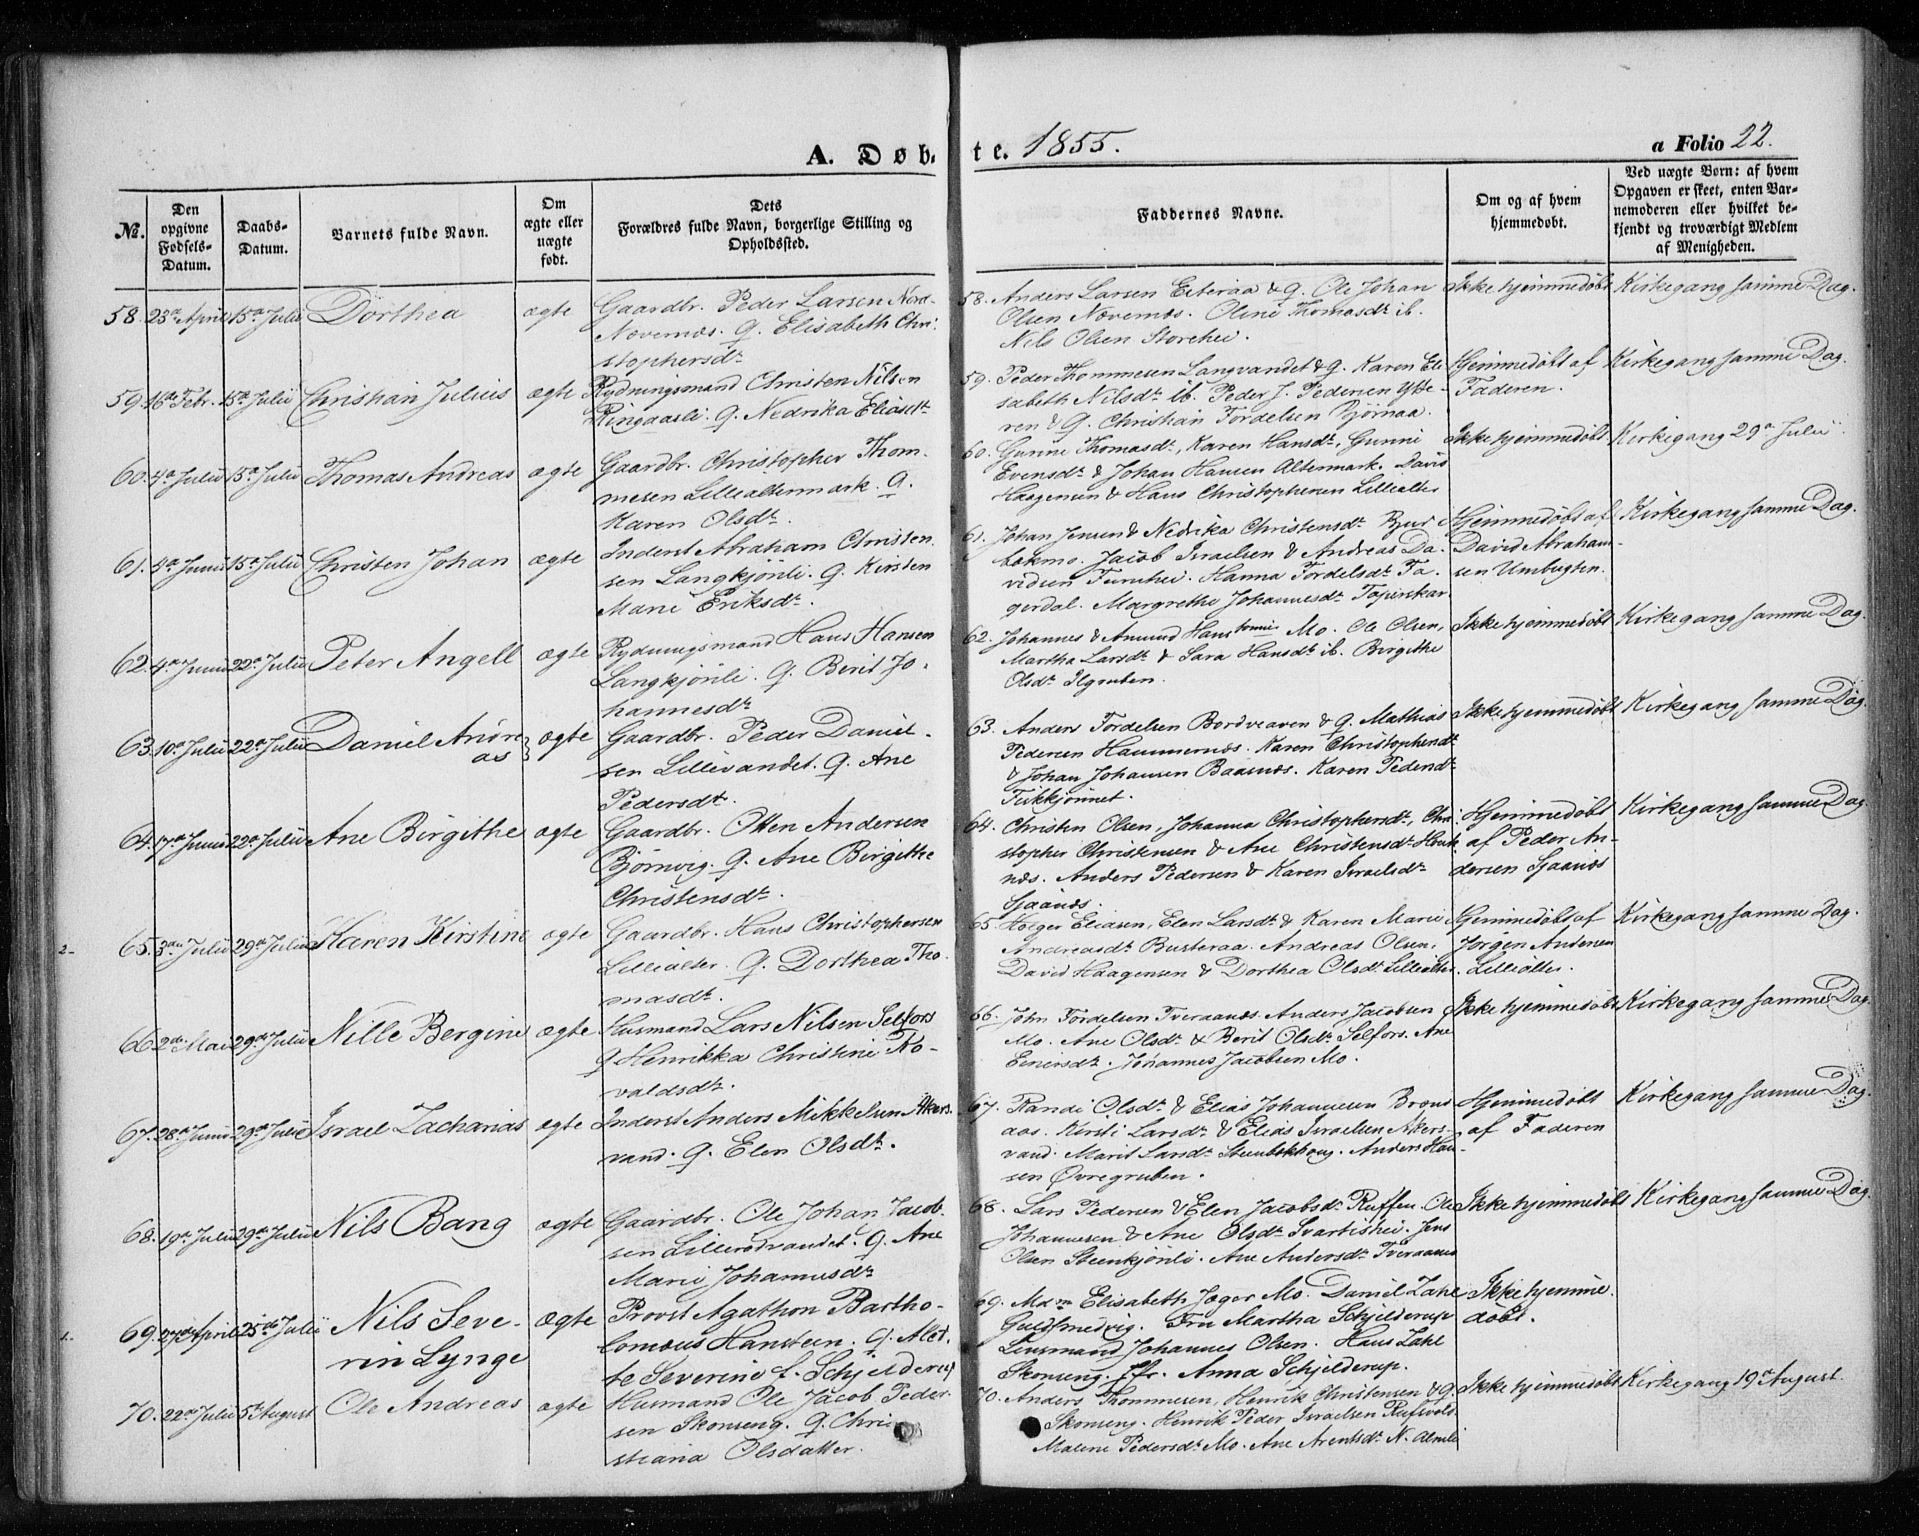 A. Døb-te. 1855.
a Folio 22.
№.
Den opgivne Fødsels-Datum.
Daabs-Datum.
Barnets fulde Navn.
Om ægte eller uægte født.
Dets Forældres fulde Navn, borgerlige Stilling og Opholdssted.
Faddernes Navne.
Om og af hvem hjemmedøbt.
Ved uægte Børn: af hvem Opgaven er skeet, enten Barnemoderen eller hvilket bekjendt og troværdigt Medlem af Menigheden.
58. 23de April 15de Julii Dorthea ægte
Gaardbr. Peder Larsen Nord-
Nævernæs. G. Elisabeth Chri-
stophersdt
58. Anders Larsen Eiteraa & G. Ole Johan
Olsen Nævernæs. Oline Thomasdt ib.
Nils Olsen Storehei.
Ikke hjemmedøbt
Kirkegang samme Dag.
59. 16de Febr. 15de Julii Christian Julius ægte
Rydningsmand Christen Nilsen
Ringaasli. G. Nedrika Eliasdt
59. Peder Thommesen Langvandet & G. Karen Eli
sabeth Nilsdt ib. Peder J. Pedersen Ytte-
ren & G. Christian Tordelsen Bjørnaa.
Hjemmedøbt af
Faderen.
Kirkegang samme Dag.
60. 4de Julii 15de Julii Thomas Andreas ægte
Gaardbr. Christopher Thom-
mesen Lillealtermark. G.
Karen Olsdt.
60. Gunne Thomasdt, Karen Hansdt, Gunni
Evensdt & Johan Hansen Altermark. David
Haagensen & Hans Christophersen Lillealter
Ikke hjemmedøbt
Kirkegang 29de Julii
61. 4de Junii 15de Julii Christen Johan ægte
Inderst Abraham Christen-
sen Langkjønli. G. Kirsten
Marie Eriksdt.
61. Johan Jensen & Nedrika Christensdt Bjur
bekmo. Jacob Israelsen & Andreas Da-
vidsen Furuhei. Hanna Tordelsdt Fa-
gerdal. Margrethe Johannesdt Tapirskar
Hjemmedøbt af
David Abraham-
sen Umbugten.
Kirkegang samme Dag.
62. 4de Junii 22de Julii Peter Angell ægte
Rydningsmand Hans Hansen
Langkjønli. G. Berit Jo-
hannesdt
62. Johannes & Amund Hans Mo. Ole Olsen,
Martha Larsdt & Sara Hansdt ib. Birgithe
Olsdt Ilgruben.
Ikke hjemmedøbt
Kirkegang samme Dag
63. 10de Julii 22de Julii Daniel Andre
as ægte
Gaardbr. Peder Daniel-
sen Lillevandet. G. Ane
Pedersdt.
63. Anders Tordelsen Bordveaven & G. Mathias
Pedersen Hammernæs. Karen Christophersdt
& Johan Johansen Baasnæs. Karen Pedersdt
Fiskkjønnet.
Ikke hjemmedøbt
Kirkegang samme Dag
64. 17de Junii 22de Julii Ane Birgithe ægte
Gaardbr. Otten Andersen
Bjørnvig. G. Ane Birgithe
Christensdt.
64. Christen Olsen, Johanna Christophersdt, Chri-
stopher Christensen & Ane Christensdt
næs. Anders Pedersen & Karen Israelsdt
Sjaanæs.
Hjemmedøbt
af Peder An-
dersen Sjaanæs
Kirkegang samme Dag
2.-
65. 3die Julii 29de Julii Karen Kirstine ægte
Gaardbr. Hans Christophersen
Lillealter. G. Dorthea Tho-
masdt.
65. Holger Eliasen, Elen Larsdt & Karen Marie
Andreasdt Busteraa. Andreas Olsen,
David Haagensen & Dorthea Olsdt Lillealter.
Hjemmedøbt af
Jørgen Andersen
Lillealter.
Kirkegang samme Dag.
66. 2den Mai 29de Julii Nille Bergine ægte
Husmand Lars Nilsen Selfors
G Henrikka Christine No-
valdsdt.
66. John Tordelsen Tveraanæs. Anders Jacobsen
Mo. Ane Olsdt & Berit Olsdt Selfors. Ane
Einersdt. Johannes Jacobsen Mo.
Ikke hjemmedøbt
Kirkegang samme Dag
67. 28de Junii 29de Julii Israel Zacharias ægte
Inderst Anders Mikkelsen Akers-
vand. G. Elen Olsdt.
67. Randi Olsdt & Elias Johannesen Bruns
aas. Kirsti Larsdt & Elias Israelsen Akers-
vand. Marit Larsdt Steenbekhaug. Anders Han-
sen Øvregruben.
Hjemmedøbt
af Faderen
Kirkegang samme Dag.
68. 19de Julii 29de Julii Nils Bang ægte
Gaardbr. Ole Johan Jacob-
sen Lillerødvandet. G. Ane
Marie Johannesdt
68. Lars Pedersen & Elen Jacobsdt Ruffen. Ole
Johannesen & Ane Olsdt Svartishei. Jens
Olsen Steenkjønli. Ane Andersdt Tveraanæs
Ikke hjemmedøbt
Kirkegang samme Dag.
1.-
69. 27de April 25de Julii Nils Seve-
rin Lynge ægte
Provst Agathon Bartho-
lomæus Hansteen. G. Alet-
te Severine f. Schjelderup
69. Mdm Elisabeth Jæger Mo. Daniel Zahl
Guldsmedvig. Fru Martha Schjelderup
Lensmand Johannes Olsen. Hans Zahl
Skonseng. Jfr. Anna Schjelderup.
Ikke hjemme-
døbt.
70. 22de Julii 5te August Ole Andreas ægte
Husmand Ole Jacob Peder-
sen Skonseng. G. Chri-
stiania Olsdatter.
70. Anders Thommesen, Henrik Christensen & G.
Skonseng. Henrik Peder Israelsen Rufsvold
Malene Pedersdt Mo. Ane Arentsdt N. Almli
Ikke hjemmedøbt
Kirkegang 19de August.